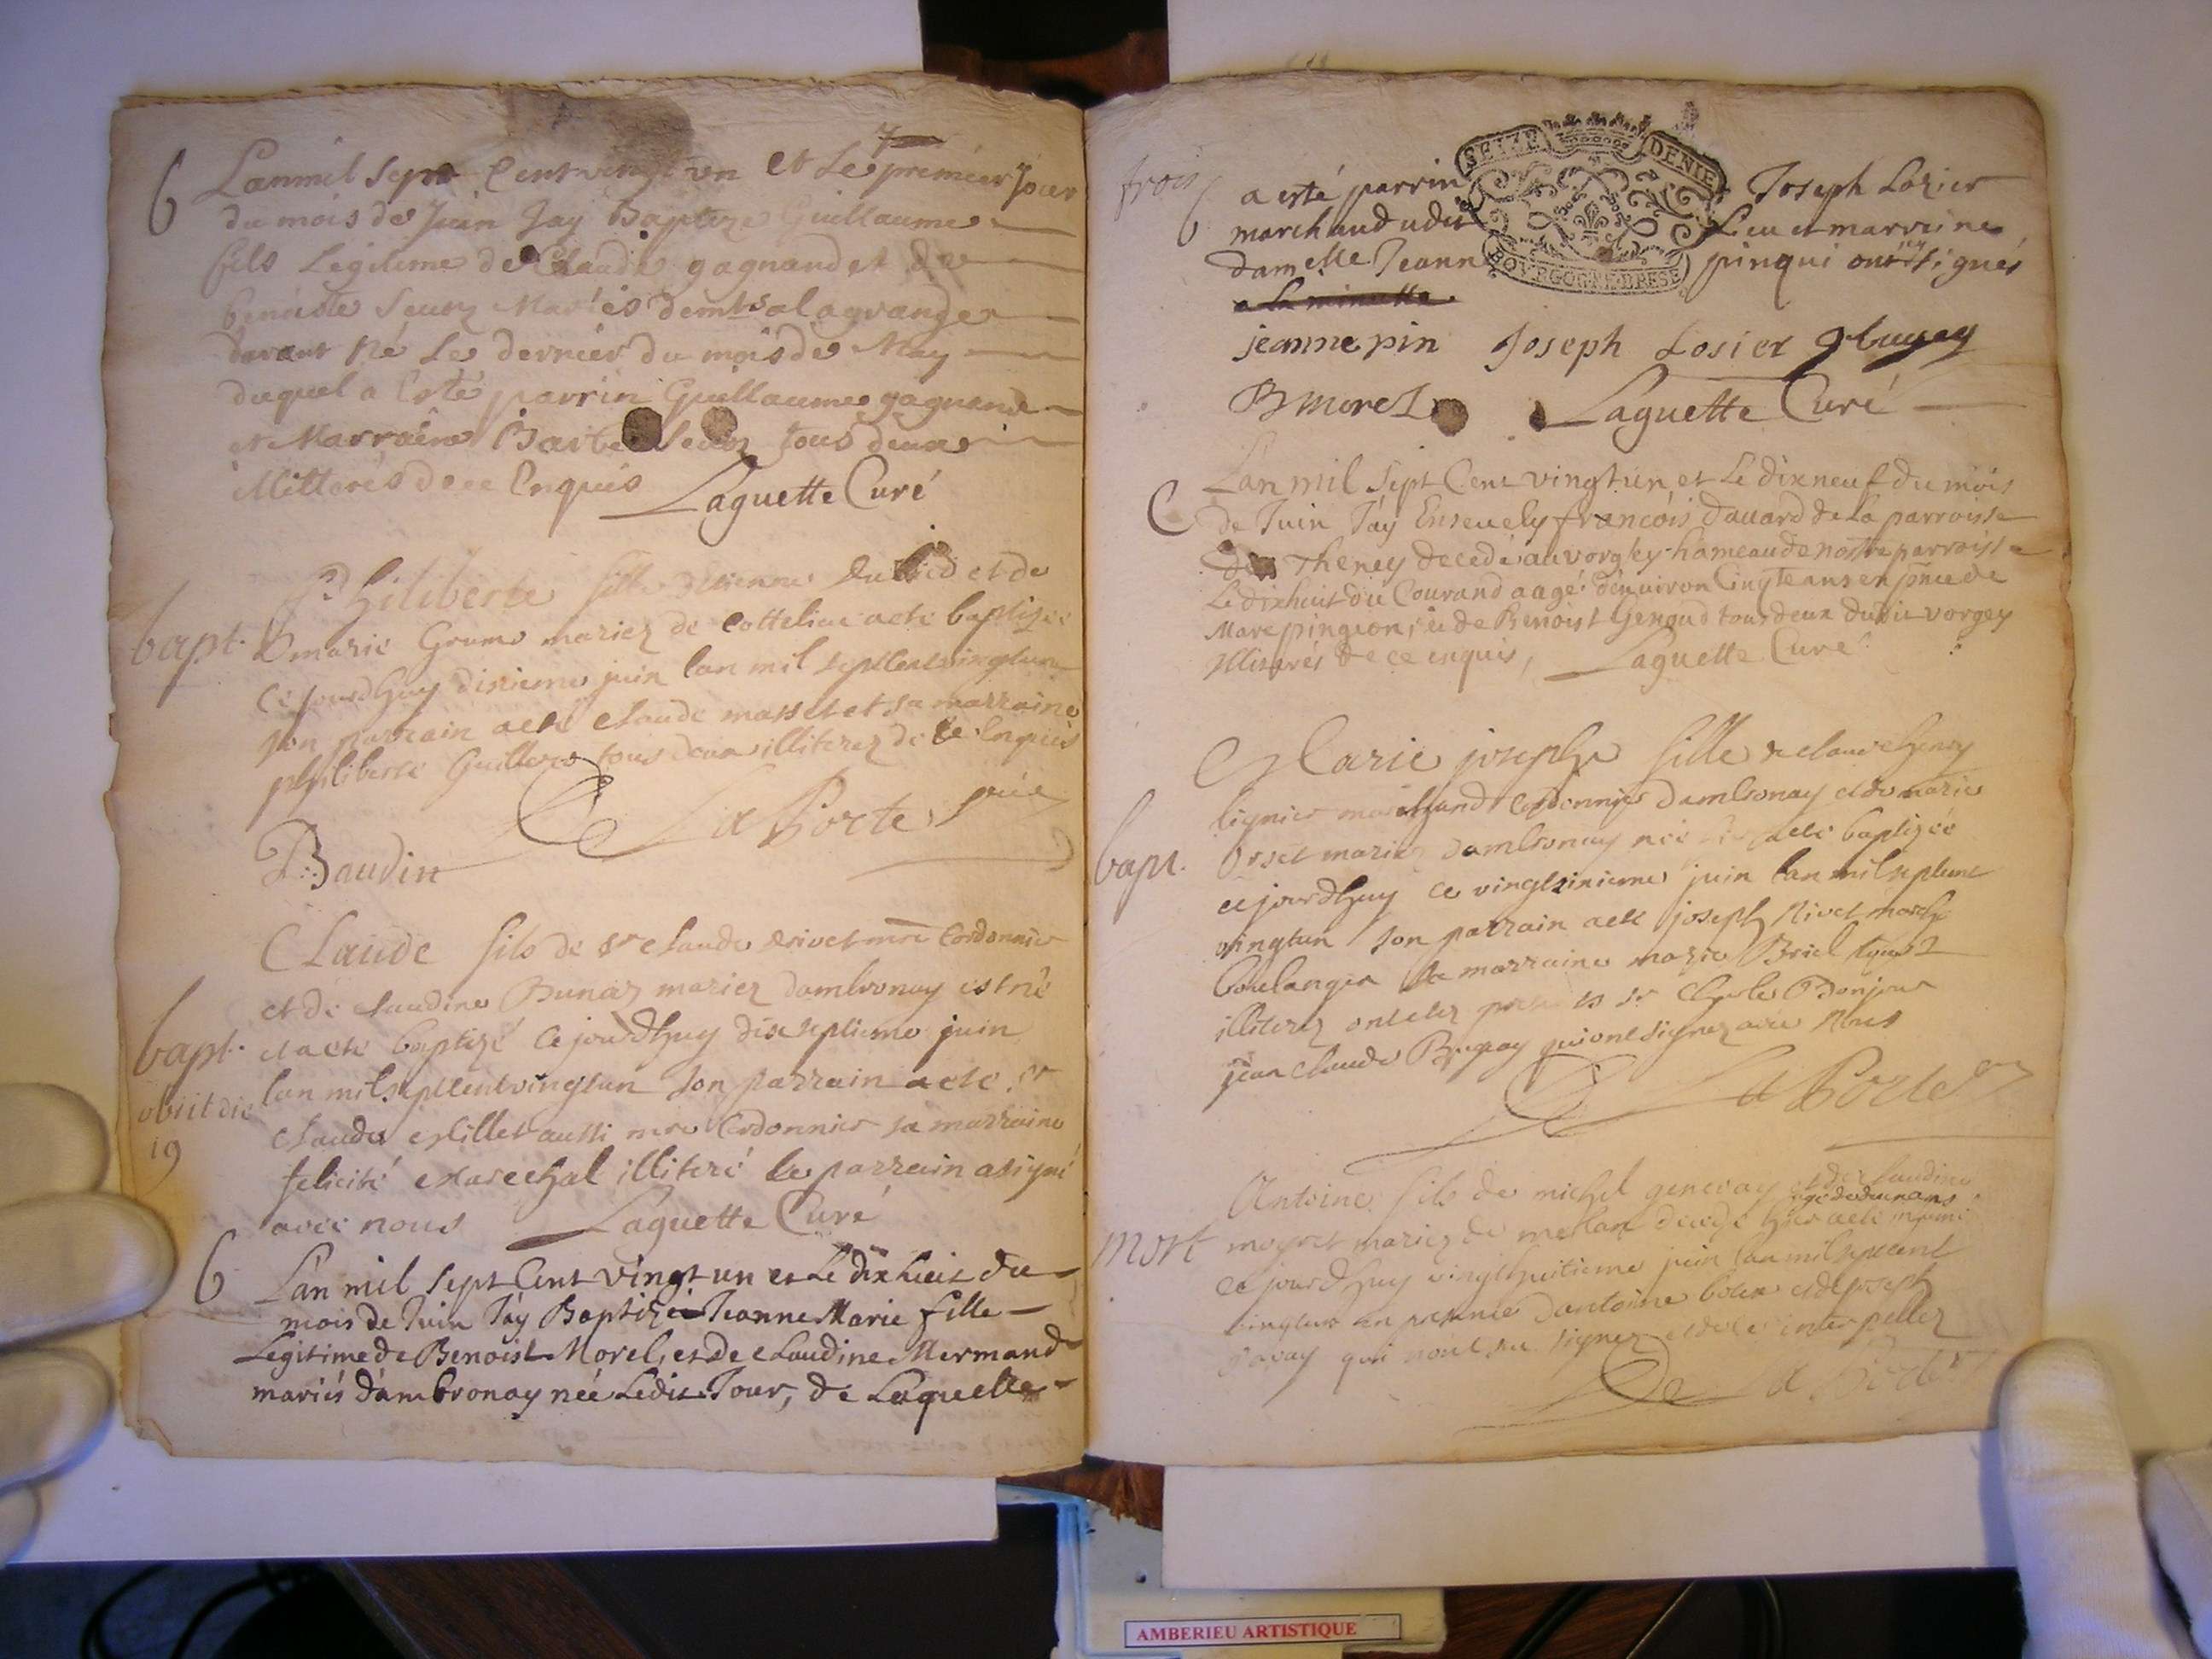 7
6 L'an mil sept Cent vingt un et Le premier Jour
du mois de Juin Jay Baptize Guillaume
fils Legitime de Claude gagnand et de
benoiste Seury Mariés dem
davant Né Le dernier du mois de May
duquel a Esté parrin Guillaume gagnand
et Marraine Barbe Seury tous deux
illitterés de ce Enquis Laguette Curé
bapt. Philiberte fille detienne et de
marie Grume mariez de Cotteliae a eté baptizée
Ce jourdhuy dixieme juin lan mil septcentvingtun
son parrain a eté Claude masset et sa marraine
philiberte Guillere tous deux illiterez de ce Enquis
De La Porte
Baudin
bapt. obiit die 19
Claude fils de sr Claude Rivet mre Cordonnier
et de Claudine Bunaz mariez dambronay est né
et a eté baptizé Ce jourdhuy dixseptieme juin
lan mil septcentvingtun son parrain a eté sr
Claude Millet aussi mre Cordonnier sa marraine
felicité Marechal illiteré le parrain a signé
avec nous Laguette Curé
6 L'an mil Sept Cent vingt un et Le dix huit du
mois de Juin J'ay Baptizé Jeanne Marie fille
Legitime de Benoist Morel, et de Claudine Mermand
mariés d'ambronay née Ledit Jour, de Laquelle
trois
a esté parrin Joseph Lozier
marchand udit Lieu et marreine
damelle Jeanne pin qui ont signés
a La minutte
SEIZE DENIE
BOURGOGNE BRESE
jeanne pin Joseph Losier
B morel Laguette Curé
L'an mil Sept Cent vingt un et Le dix neuf du mois
de Juin J'ay Ensevely françois davard de La parroisse
de Theney decedé au vorgey hameau de nostre parroisse
Le dixhuit du Courand aagé d'enuiron Cinqte ans en pnce de
Marc pingeon, et de Benoist Genoud tous deux dudit vorgey
illiterés de ce enquis, Laguette Curé
bapt.
Marie josephe fille de claude henry
lignier marchand Cordonnier dambronay et de marie
Orset mariez dambronay née a eté baptizée
ce jourdhuy ce vingtsixieme juin lan mil septcent
vingtun son parrain a eté joseph Rivet march
boulanger sa marraine marie Briel tous 2
illiterez sr Charles Bonjour
jean claude Bugay qui ont signez avec Nous
De La Porte
mort
Antoine fils de michel genevay et de claudine
agé de deux ans
moyret mariez de merlan decedé hier a eté inhumé
ce jourdhuy vingthuitieme juin lan mil septcent
vingtun en presence dantoine bolex et de joseph
Savay qui nont sceu signer et de ce interpellez
De La Porte
AMBERIEU ARTISTIQUE